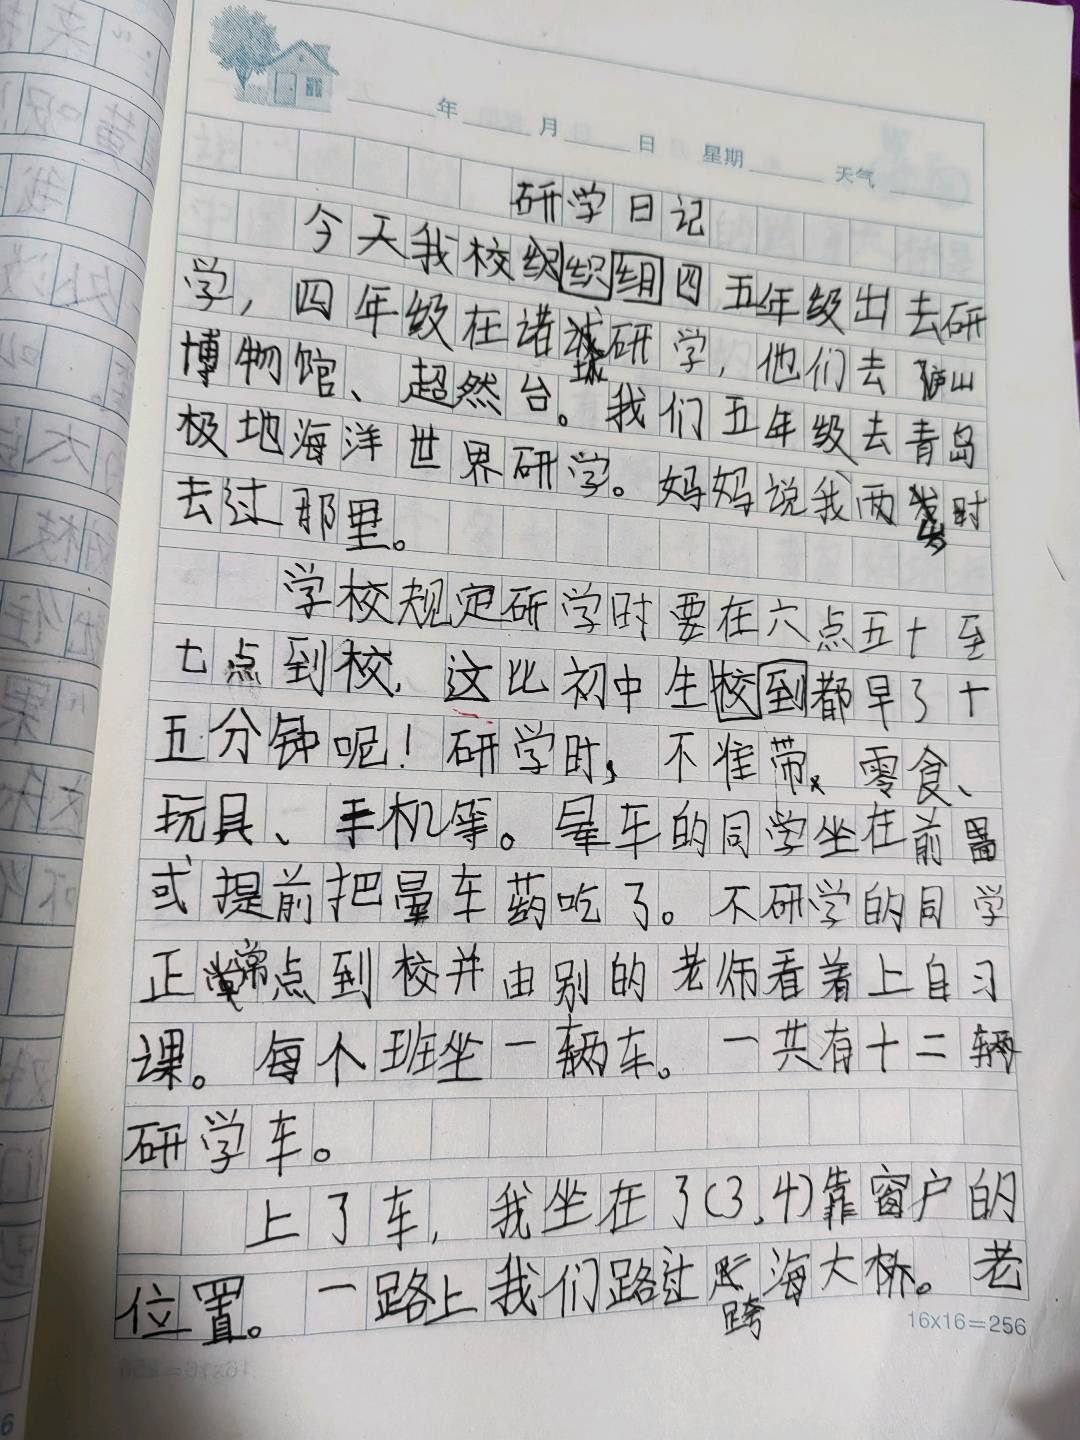 年 月 日 星期 天气
研学日记
今天我校织织组四五年级出去研
学，四年级在诸城研学，他们去庐山
博物馆、超然台。我们五年级去青岛
极地海洋世界研学。妈妈说我两岁时
去过那里。
学校规定研学时要在六点五十至
七点到校，这比初中生校到都早了十
五分钟呢！研学时，不准带、零食、
玩具、手机等。晕车的同学坐在前面
或提前把晕车药吃了。不研学的同学
正常点到校并由别的老师看着上自习
课。每个班坐一辆车。一共有十二辆
研学车。
上了车，我坐在了(3,4)靠窗户的
位置。一路上我们路过跨海大桥。老
16x16=256